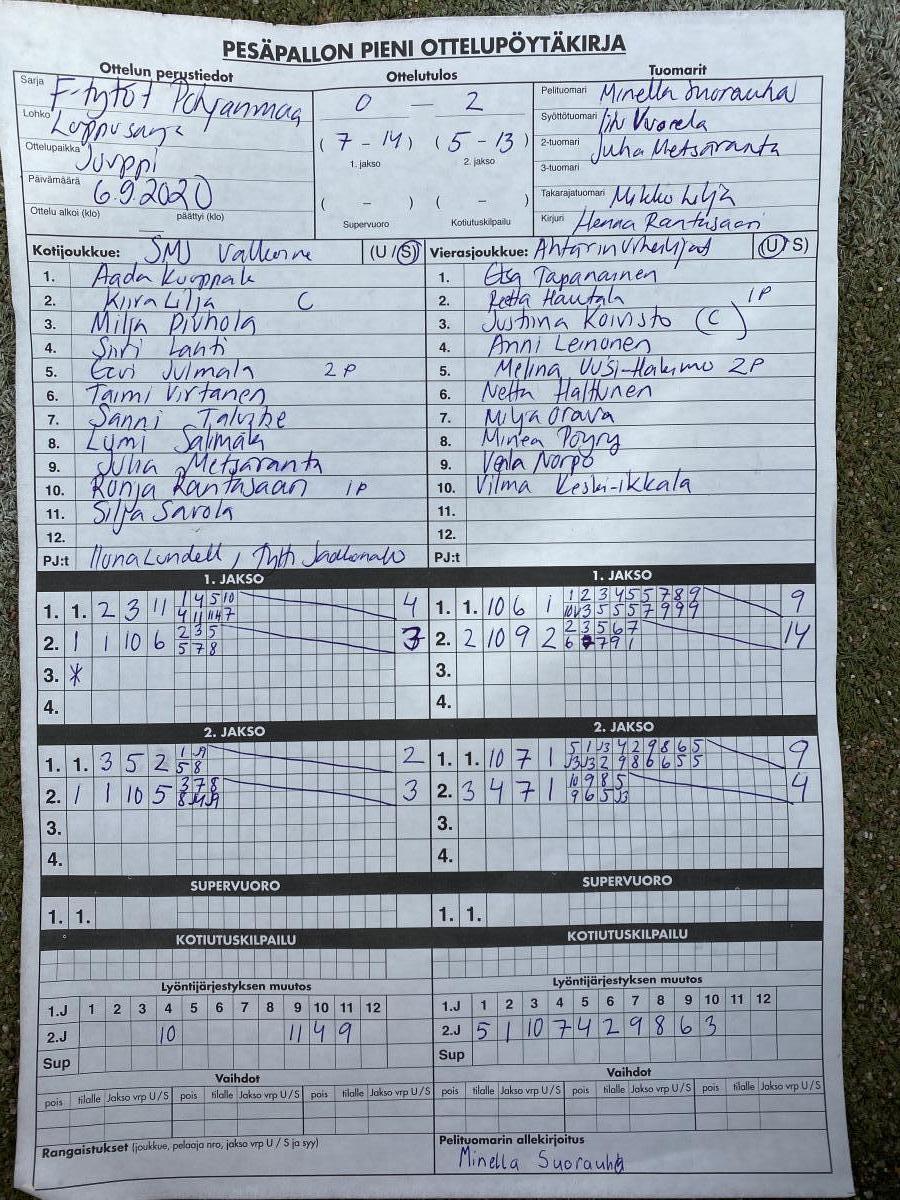 PESÄPALLON PIENI OTTELUPÖYTÄKIRJA
Ottelun perustiedot
Sarja F-tytöt Pohjanmaa
Lohko Loppusarja
Ottelupaikka Jurppi
Päivämäärä 6.9.2020
Ottelu alkoi (klo) päättyi (klo)
Ottelutulos
0 — 2
(7 - 14) (5 - 13)
1. jakso 2. jakso
( - ) ( - )
Supervuoro Kotiutuskilpailu
Tuomarit
Pelituomari Minella Suorauha
Syöttötuomari Iiv Vuorela
2-tuomari Juha Metsäranta
3-tuomari
Takarajatuomari Mikko Lilja
Kirjuri Henna Rantasaari
Kotijoukkue: SMJ Valkoinen (U / S)
1. Aada
2. Kiira Lilja C
3. Milja Pivhola
4. Siiri Lahti
5. Eevi Julmala 2P
6. Taimi Virtanen
7. Sanni
8. Lumi Salmela
9. Julia Metsäranta
10. Ronja Rantasaari 1P
11. Silja Savola
12.
PJ:t Ilona Lundell,
Vierasjoukkue: Ähtärin Urheilijat (U / S)
1. Elsa Tapanainen
2. Reetta Hautala 1P
3. Justiina Koivisto (C)
4. Anni Leinonen
5. Melina Uusi-Hakimo 2P
6. Netta Halttunen
7. Milja Orava
8. Minea Pöyry
9. Veela Norpo
10. Vilma Keski-ikkala
11.
12.
PJ:t
1. JAKSO
1. 1. 2 3 11 1 4 5 10 4
4 11 11 4 7
2. 1 1 10 6 2 3 5 3
5 7 8
3. *
4.
1. JAKSO
1. 1. 10 6 1 1 2 3 4 5 5 7 8 9 9
5 5 5 7 9 9 9
2. 2 10 9 2 2 3 5 6 7 14
6 7 9 1
3.
4.
2. JAKSO
1. 1. 3 5 2 1 2
5 8
2. 1 1 10 5 3 7 8 3
8
3.
4.
2. JAKSO
1. 1. 10 7 1 5 1 4 2 9 8 6 5 9
2 9 8 6 6 5 5
2. 3 4 7 1 10 9 8 5 4
9 6 5
3.
4.
SUPERVUORO
1. 1.
SUPERVUORO
1. 1.
KOTIUTUSKILPAILU
KOTIUTUSKILPAILU
Lyöntijärjestyksen muutos
1.J 1 2 3 4 5 6 7 8 9 10 11 12
2.J 10 11 4 9
Sup
Lyöntijärjestyksen muutos
1.J 1 2 3 4 5 6 7 8 9 10 11 12
2.J 5 1 10 7 4 2 9 8 6 3
Sup
Vaihdot
pois tilalle Jakso vrp U / S pois tilalle Jakso vrp U / S pois tilalle Jakso vrp U / S
Vaihdot
pois tilalle Jakso vrp U / S pois tilalle Jakso vrp U / S pois tilalle Jakso vrp U / S
Rangaistukset (joukkue, pelaaja nro, jakso vrp U / S ja syy)
Pelituomarin allekirjoitus
Minella Suorauha